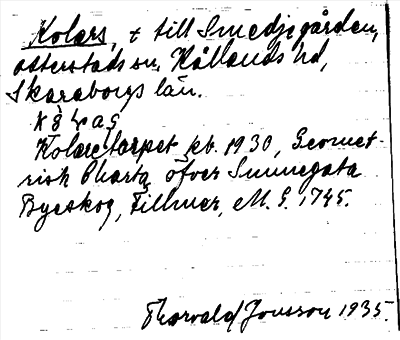 Kolars, t till Smedjegården,
Otterstads sn, Kållands hd,
Skaraborgs län.
Kolaretorpet kb. 1930, Geomet-
risk Charta öfver Sunnegata
Byeskog, Fillmer, M. G. 1745.
Thorvald Jonsson 1935.